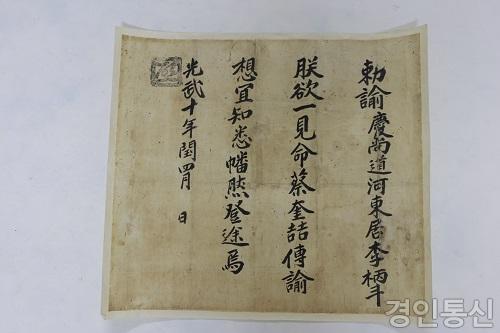 勅諭慶尚道河東居李柄斗
朕欲一見命蔡奎喆傳諭
想宜知悉幡然登途焉
光武十年閏四月 日
경인통신